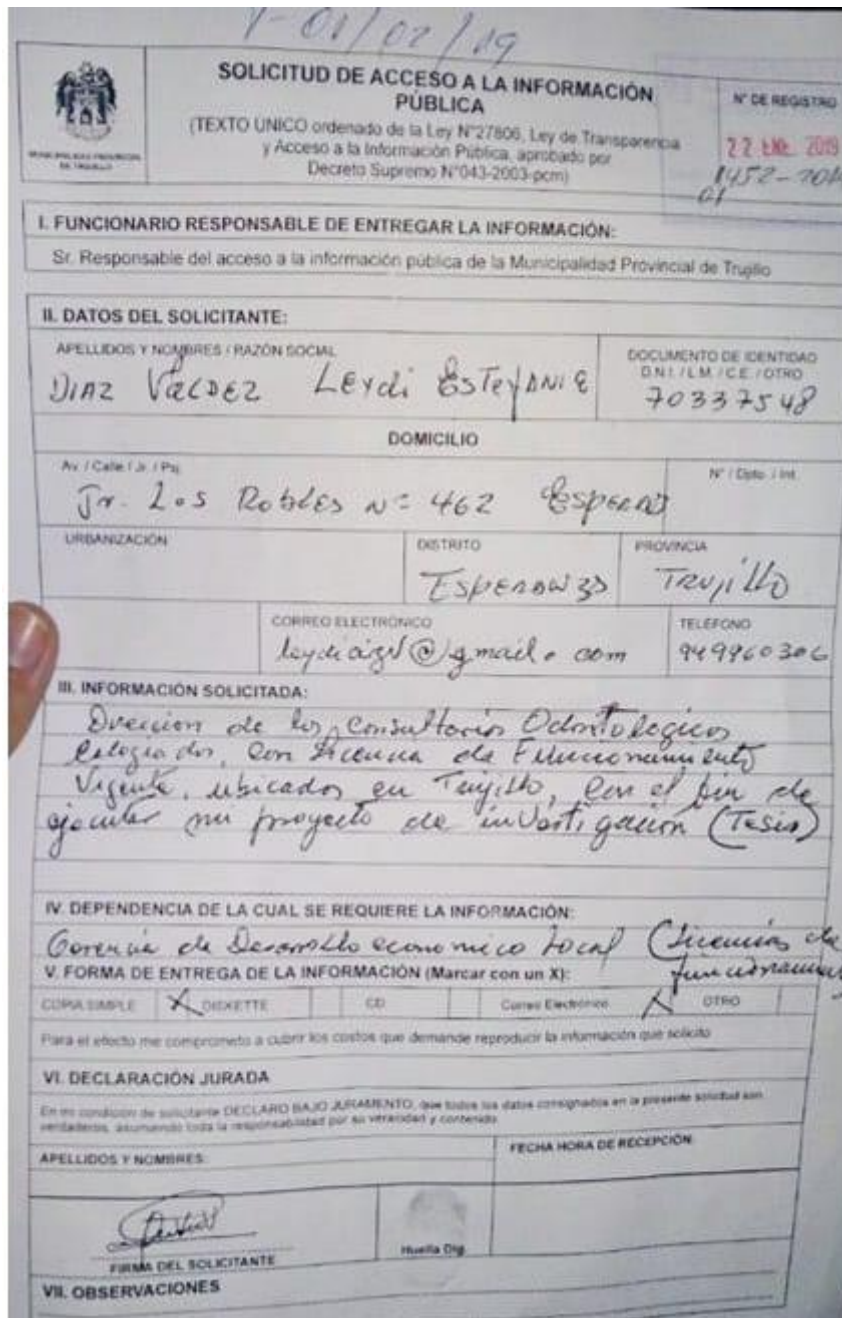 V-01/02/19
SOLICITUD DE ACCESO A LA INFORMACIÓN
PÚBLICA
(TEXTO UNICO ordenado de la Ley N°27806, Ley de Transparencia
y Acceso a la Información Pública, aprobado por
Decreto Supremo N°043-2003-pcm)
N° DE REGISTRO
22 ENE. 2019
1452-
01
MUNICIPALIDAD PROVINCIAL
DE TRUJILLO
I. FUNCIONARIO RESPONSABLE DE ENTREGAR LA INFORMACIÓN:
Sr. Responsable del acceso a la información pública de la Municipalidad Provincial de Trujillo
II. DATOS DEL SOLICITANTE:
APELLIDOS Y NOMBRES / RAZÓN SOCIAL
DIAZ VALDEZ LEYDI ESTEFANIE
DOCUMENTO DE IDENTIDAD
D.N.I. / L.M. / C.E. / OTRO
70337548
DOMICILIO
Av. / Calle / Jr. / Psj.
N° / Dpto. / Int.
Jr. Los Robles N= 462
URBANIZACIÓN
DISTRITO
PROVINCIA
Esperanza
Trujillo
CORREO ELECTRÓNICO
TELEFONO
@gmail.com
949960306
III. INFORMACIÓN SOLICITADA:
Dirección de los Consultorios Odontologicos
Colegiados, Con Licencia de Funcionamiento
Vigente, ubicados en Trujillo, Con el fin de
ejecutar mi proyecto de investigación (Tesis)
IV. DEPENDENCIA DE LA CUAL SE REQUIERE LA INFORMACIÓN:
Gerencia de Desarrollo economico Local (Licencias de
funcionamiento
V. FORMA DE ENTREGA DE LA INFORMACIÓN (Marcar con un X):
COPIA SIMPLE X DISKETTE CD Correo Electrónico X OTRO
Para el efecto me comprometo a cubrir los costos que demande reproducir la información que solicito
VI. DECLARACIÓN JURADA
En mi condición de solicitante DECLARO BAJO JURAMENTO, que todos los datos consignados en la presente solicitud son
verdaderos, asumiendo toda la responsabilidad por su veracidad y contenido
APELLIDOS Y NOMBRES:
FECHA HORA DE RECEPCIÓN
FIRMA DEL SOLICITANTE
Huella Dig.
VII. OBSERVACIONES